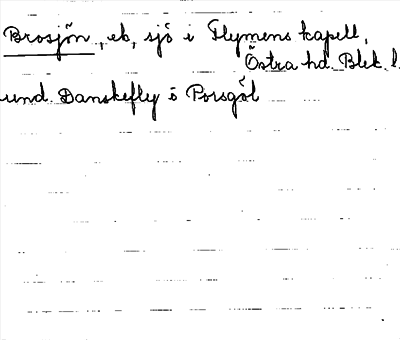 Brosjön, eb, sjö i Flymens kapell,
Östra hd. Blek. l.
und. Danskefly o Porsgöl